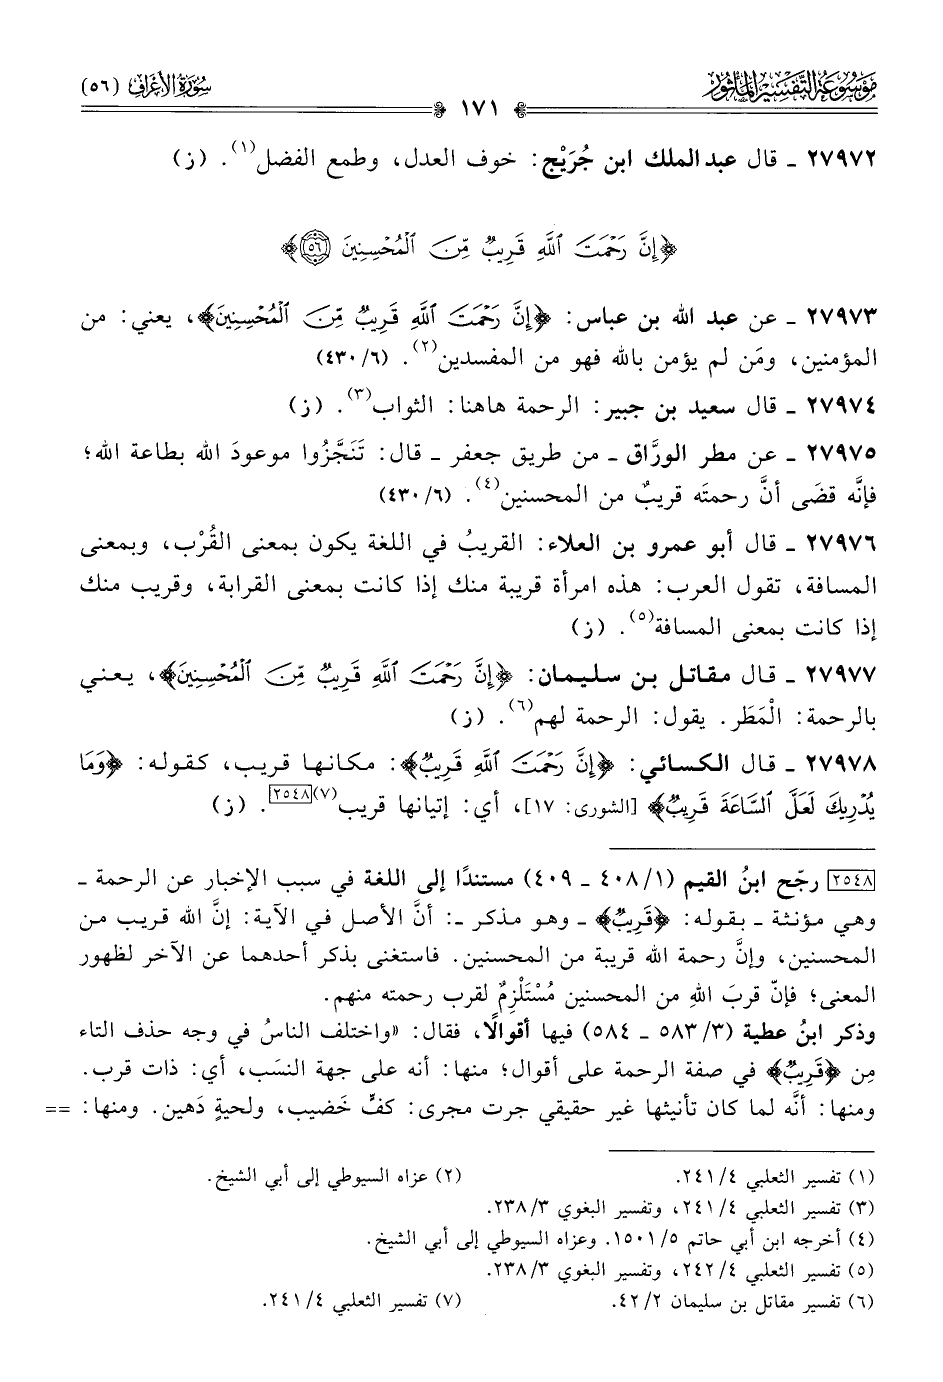 موسوعة التفسير المأثور
سورة الأعراف (٥٦)
١٧١
٢٧٩٧٢ ـ قال عبد الملك ابن جُرَيْج: خوف العدل، وطمع الفضل(١). (ز)
﴿إِنَّ رَحْمَتَ ٱللَّهِ قَرِيبٌ مِّنَ ٱلْمُحْسِنِينَ ٥٦﴾
٢٧٩٧٣ ـ عن عبد الله بن عباس: ﴿إِنَّ رَحْمَتَ ٱللَّهِ قَرِيبٌ مِّنَ ٱلْمُحْسِنِينَ﴾، يعني: من
المؤمنين، ومَن لم يؤمن بالله فهو من المفسدين(٢). (٦/ ٤٣٠)
٢٧٩٧٤ ـ قال سعيد بن جبير: الرحمة هاهنا: الثواب(٣). (ز)
٢٧٩٧٥ ـ عن مطر الورَّاق ـ من طريق جعفر ـ قال: تَنَجَّزُوا موعودَ الله بطاعة الله؛
فإنَّه قضَى أنَّ رحمتَه قريبٌ من المحسنين(٤). (٦/ ٤٣٠)
٢٧٩٧٦ ـ قال أبو عمرو بن العلاء: القريبُ في اللغة يكون بمعنى القُرْب، وبمعنى
المسافة، تقول العرب: هذه امرأة قريبة منك إذا كانت بمعنى القرابة، وقريب منك
إذا كانت بمعنى المسافة(٥). (ز)
٢٧٩٧٧ ـ قال مقاتل بن سليمان: ﴿إِنَّ رَحْمَتَ ٱللَّهِ قَرِيبٌ مِّنَ ٱلْمُحْسِنِينَ﴾، يعني
بالرحمة: الْمَطَر. يقول: الرحمة لهم(٦). (ز)
٢٧٩٧٨ ـ قال الكسائي: ﴿إِنَّ رَحْمَتَ ٱللَّهِ قَرِيبٌ﴾: مكانها قريب، كقوله: ﴿وَمَا
يُدْرِيكَ لَعَلَّ ٱلسَّاعَةَ قَرِيبٌ﴾ [الشورى: ١٧]، أي: إتيانها قريب(٧)[٢٥٤٨]. (ز)
[٢٥٤٨] رجّح ابنُ القيم (١/ ٤٠٨ ـ ٤٠٩) مستندًا إلى اللغة في سبب الإخبار عن الرحمة ـ
وهي مؤنثة ـ بقوله: ﴿قَرِيبٌ﴾ ـ وهو مذكر ـ: أنَّ الأصل في الآية: إنَّ الله قريب من
المحسنين، وإنَّ رحمة الله قريبة من المحسنين. فاستغنى بذكر أحدهما عن الآخر لظهور
المعنى؛ فإنّ قربَ اللهِ من المحسنين مُسْتَلْزِمٌ لقرب رحمته منهم.
وذكر ابنُ عطية (٣/ ٥٨٣ ـ ٥٨٤) فيها أقوالًا، فقال: «واختلف الناسُ في وجه حذف التاء
مِن ﴿قَرِيبٌ﴾ في صفة الرحمة على أقوال؛ منها: أنه على جهة النسَب، أي: ذات قرب.
ومنها: أنَّه لما كان تأنيثها غير حقيقي جرت مجرى: كفٍّ خَضيب، ولحيةٍ دَهين. ومنها: ==
(١) تفسير الثعلبي ٤/ ٢٤١. (٢) عزاه السيوطي إلى أبي الشيخ.
(٣) تفسير الثعلبي ٤/ ٢٤١، وتفسير البغوي ٣/ ٢٣٨.
(٤) أخرجه ابن أبي حاتم ٥/ ١٥٠١. وعزاه السيوطي إلى أبي الشيخ.
(٥) تفسير الثعلبي ٤/ ٢٤٢، وتفسير البغوي ٣/ ٢٣٨.
(٦) تفسير مقاتل بن سليمان ٢/ ٤٢. (٧) تفسير الثعلبي ٤/ ٢٤١.